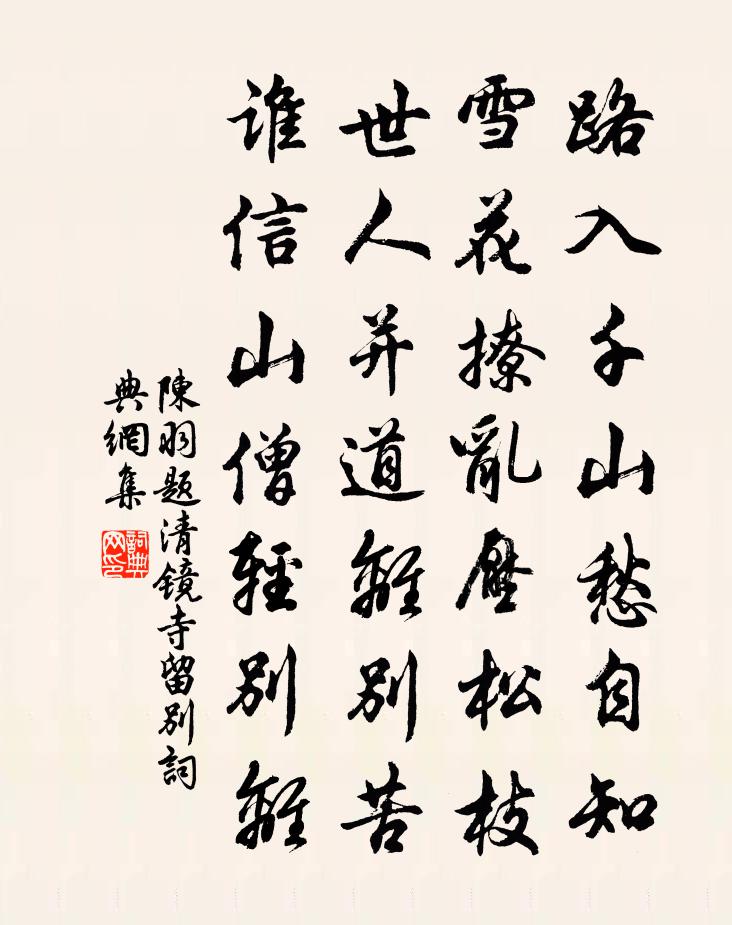 路入千山愁自知
雪花撩亂壓松枝
世人并道離別苦
誰信山僧輕別離
陳羽题清鏡寺留別詞
典網集
詞典
网印